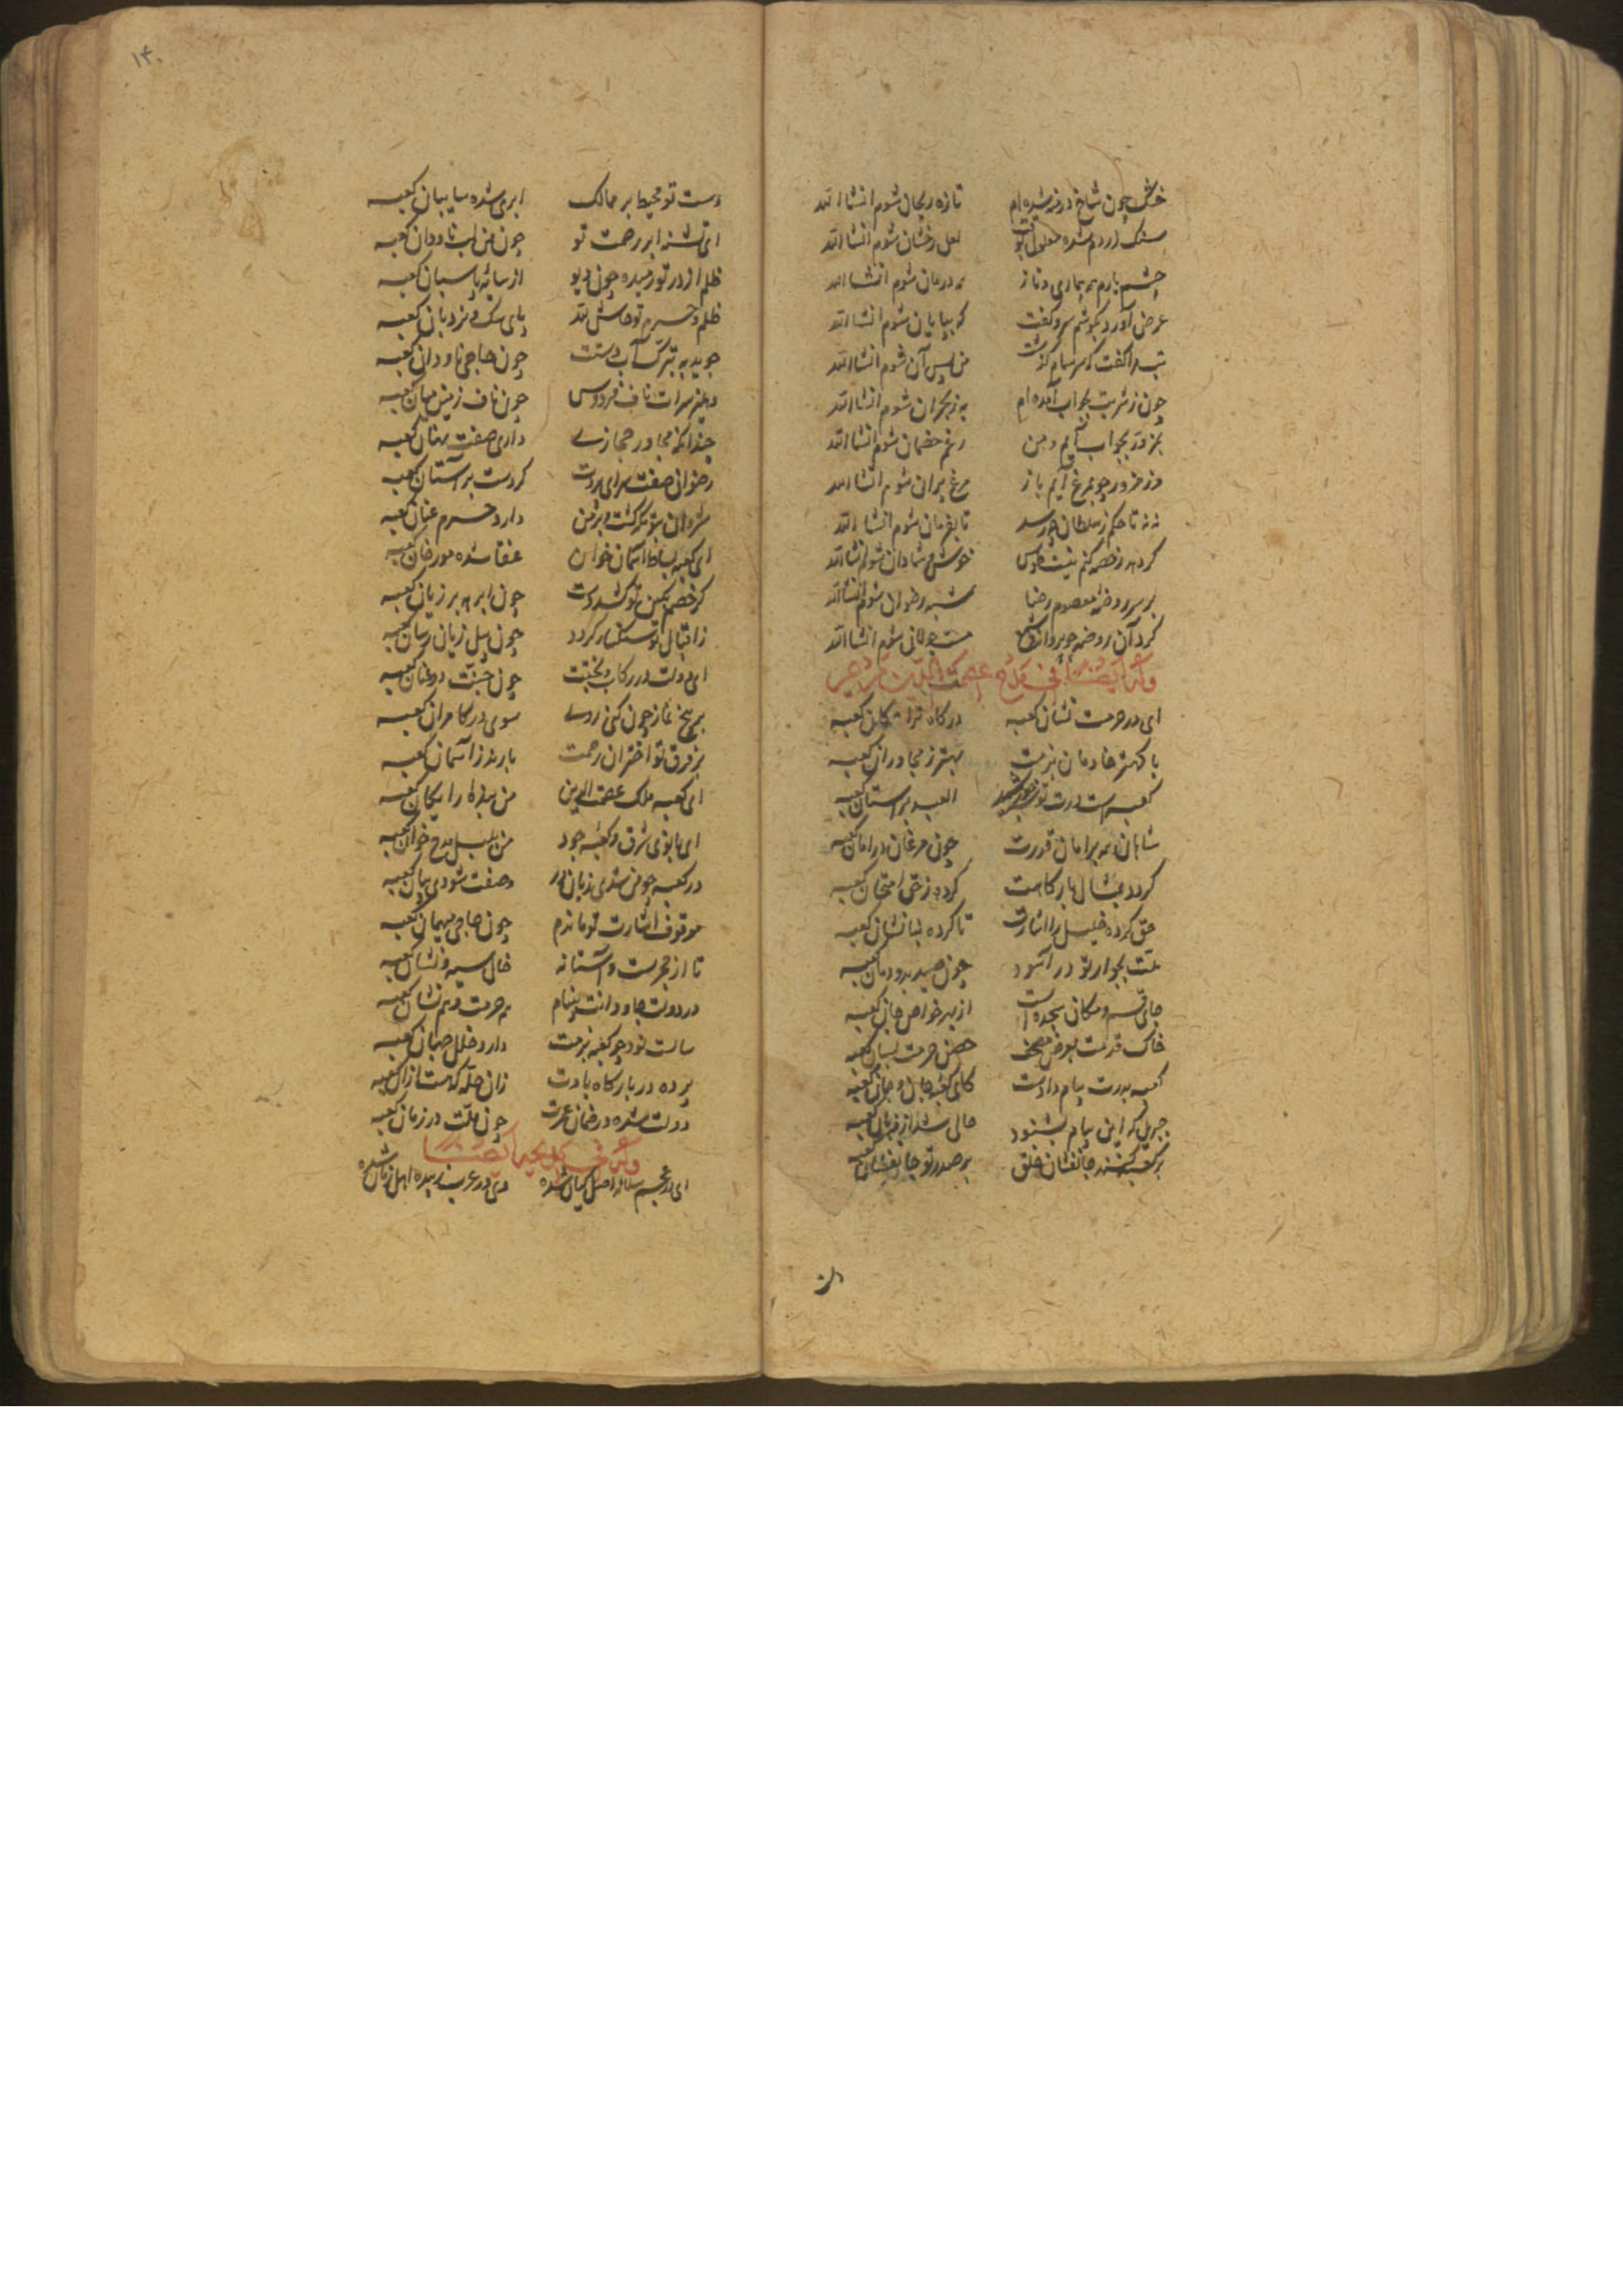 ۱۴۰
خشک چون شاخ درمنه شده‌ام تازه ریحان شوم انشاالله
سنک زردم شده معلول لعل رخشان شوم انشاالله
چشم یارم همه بیماری و ناز همه درمان شوم انشاالله
عرض آورد بکوشم سر و کفت که بپایان شوم انشاالله
تب مرا کفت که سرسام کذشت من پس آن شوم انشاالله
چون ز شربت بجلاب آمده‌ام به ز بحران شوم انشاالله
بمزور ز جواب آیم و من رغم خصمان شوم انشاالله
وز مزور چو بمرغ آیم باز مرغ پران شوم انشاالله
نه نه تا حکم ز سلطان چه رسد تا بفرمان شوم انشاالله
کر دهد رخصه کنم نیت طوس خوش و شادان شوم انشاالله
بر سر روضه معصوم رضا شبه رضوان شوم انشاالله
کرد آن روضه چو پروانه شمع مست جولان شوم انشاالله
وله ایضا فی مدح عصمة الدین
ای در حرمت نشان کعبه درکاه ترا مکان کعبه
با کهتر خادمان بزمت بهتر ز مجاوران کعبه
کعبه است درت نوشته خورشید العبد بر آستان کعبه
شاهان همه در امان قدرت چون مرغان در امان کعبه
کردد بمثال بارکاهت کرده ز حق امتحان کعبه
حق کرده خلیل را اشارت تا کرده بنا نشان کعبه
ملت بجوار تو درآسود چون صید بدودمان کعبه
جای قسم و مکان سجده است از بهر خواص جان کعبه
خاک قدمت بعرض مصحف حصن حرمت بسان کعبه
کعبه بدرت پیام دادست کای کعبه جان و جان کعبه
جبریل که این پیام بشنود حالی شد از زبان کعبه
بر کعبه کنند جانفشان خلق بر صدر تو جانفشان کعبه
دست تو محیط بر ممالک ابری شده سایبان کعبه
ای تشنه ابر رحمت تو چون من لب ناودان کعبه
ظلم از در تو رمیده چون دیو از سایه پاسبان کعبه
ظلم و حرم تو حاش لله پای سک و نردبان کعبه
جوید به تبرک آب دستت چون حاجی ناودان کعبه
دهلیز سرات ناف فردوس چون ناف زمین میان کعبه
چندانکه مجاور حجازی داری صفت بنان کعبه
رضوانی صفت سرای مروت کر دست بر آستان کعبه
شروان بتو مکه کشت و بر من دارد حرم عنان کعبه
ای کعبه بساط آسمان خوان عنقا شده مور خوان کعبه
کر خصم بکین تو کشد دست چون ابرهه بر زیان کعبه
ز اقبال تو سنکسار کردد چون پیل زیان رسان کعبه
ای دولت در رکاب بختت چون جنت در عنان کعبه
پنج نماز چون کنی روی سوی در کامران کعبه
بر فرق تو اختران رحمت بارند ز آسمان کعبه
ای کعبه ملک عصمت الدین من بنده را یکان کعبه
ای بانوی شرق و کعبه جود من بلبل مدح خوان کعبه
در کعبه چو من شدی زبان‌ور وصفت شودی بیان کعبه
موقوف اشارت تو ماندم چون حاجی میهمان کعبه
تا از حجرست و آستانه خال سیه و نشان کعبه
در دولت جاودانت بینام هم حرمت و هم نشان کعبه
سالت نود چو کعبه بزمت دارد خلل جهان کعبه
پرده در بارکاه بادت زان حله که هست از آن کعبه
دولت شده در ضمان عمرت چون ملت در زمان کعبه
وله فی ایضا
ای در عجم سلاله اصل کیان شده وی در عرب زبیده اهل زمان شده